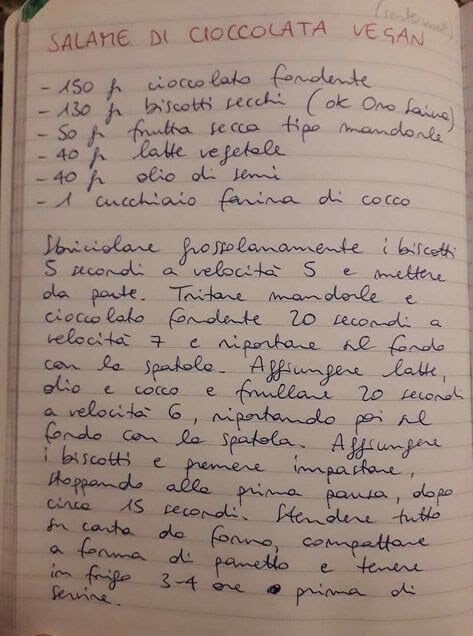 SALAME DI CIOCCOLATA VEGAN
- 150 gr cioccolato fondente
- 130 gr biscotti secchi (ok Oro Saiwa)
- 50 gr frutta secca tipo mandorle
- 40 gr latte vegetale
- 40 gr olio di semi
- 1 cucchiaio farina di cocco
Sbriciolare grossolanamente i biscotti
5 secondi a velocità 5 e mettere
da parte. Tritare mandorle e
cioccolato fondente 20 secondi a
velocità 7 e riportare sul fondo
con la spatola. Aggiungere latte,
olio e cocco e frullare 20 secondi
a velocità 6, riportando poi sul
fondo con la spatola. Aggiungere
i biscotti e premere impastare,
stoppando alla prima pausa, dopo
circa 15 secondi. Stendere tutto
su carta da forno, compattare
a forma di panetto e tenere
in frigo 3-4 ore prima di
servire.